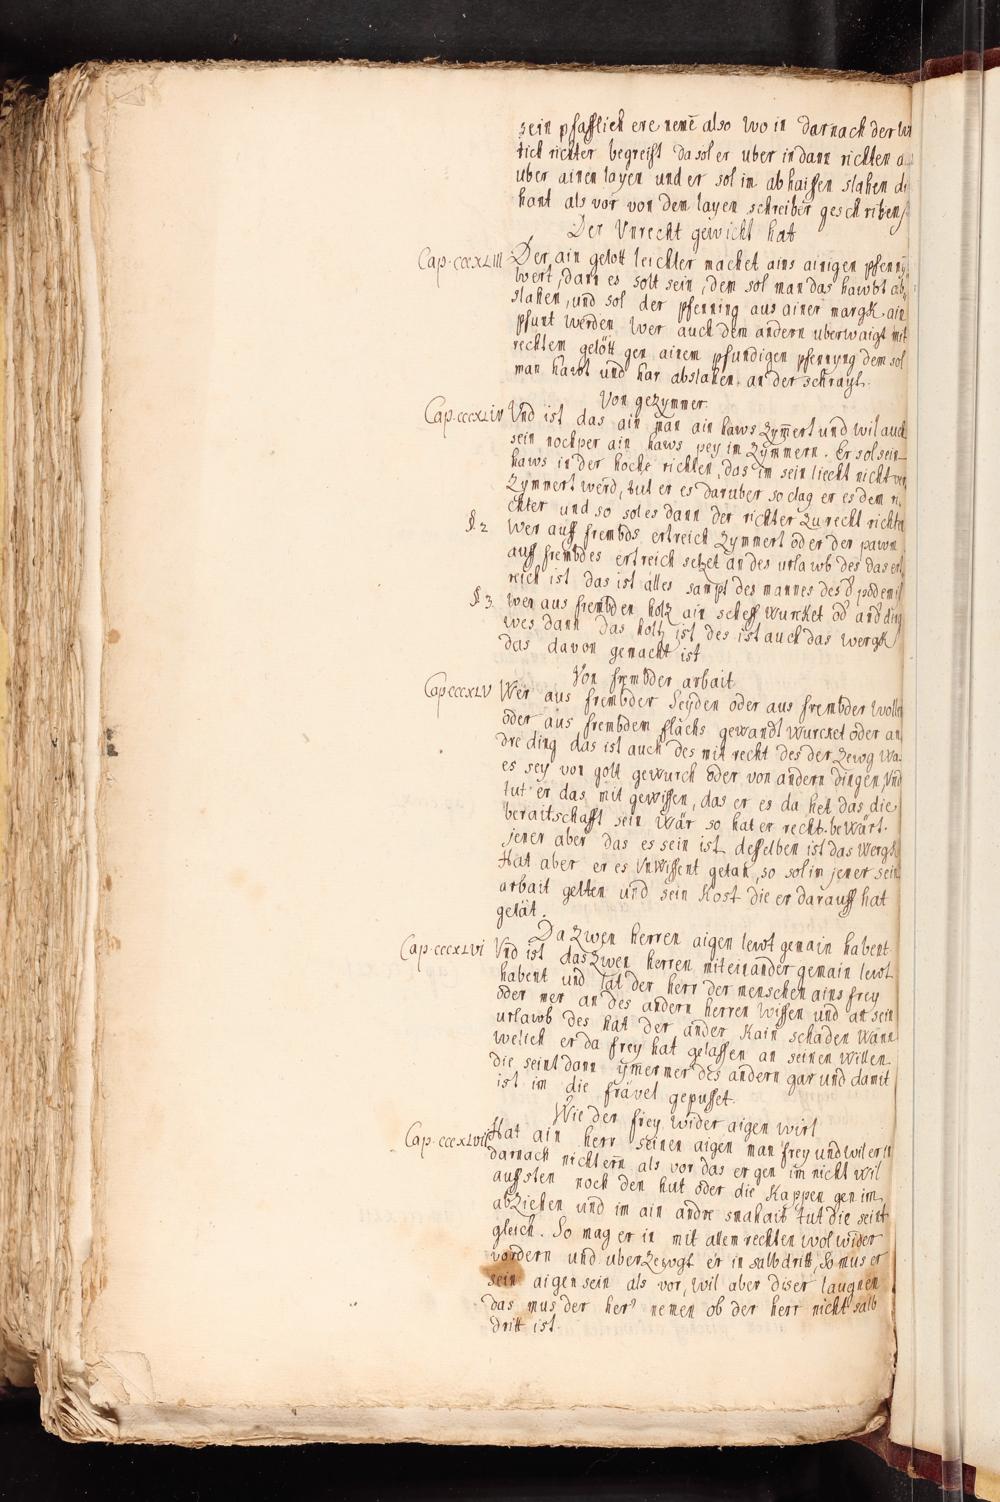 sein pfafflich ere neme also wo in darnach der w
tich richter begreifft da sol er uber in dann richten a
uber ainen layen und er sol im ab haissen slahen di
hant als vor von dem layen schreiber geschriben
Der Unrecht gewicht hat
Cap. cccXLIII Der ain gelott leichter machet ains ainigen pfenni
wert, dann es solt sein, dem sol man das hawbt ab
slahen, und sol der pfenning aus ainer margk ain
pfunt werden wer auch dem andern uberwaigt mit
rechtem gelött gen ainem pfundigen pfennyng dem sol
man hawt und har abslahen an der schrayt.
Von gezymmer
Cap. cccXLIV Und ist das ain man ain haws zym̄ert und wil auch
sein nochper ain haws pey im zymmern. Er sol sein
haws in der hoche richten, das im sein liecht nicht ver
zymmert werd, tut er es daruber so clag er es dem ri,
chter und so sol es dann der richter zu recht richten
§. 2 Wer auff frembds ertreich zymmert oder der pawm
auff frembdes ertreich setzet an des urlawb des das ert
reich ist das ist alles sampt des mannes des d' podem ist
§. 3. Wer aus frembden holtz ain scheff wurcket od' and' ding
wes dann das holtz ist des ist auch das wergk
das davon gemacht ist
Von frembder arbait
Cap cccXLV Wer aus frembder Seyden oder aus frembder wollen
oder aus frembdem flachs gewandt wurcket oder an
dre ding das ist auch des mit recht des der zewg was
es sey von golt gewurch oder von andern dingen, Und
tut er das mit gewissen, das er es da het das die
beraitschafft sein wär so hat er recht bewärt.
jener aber das es sein ist desselben ist das wergk
Hat aber er es unwissent getan, so sol im jener sein
arbait gelten und sein Kost die er darauff hat
getät.
Da zwen herren aigen lewt gemain habent
Cap. cccXLVI Und ist das zwen herren miteinander gemain lewt
habent und lat der herr der menschen ains frey
oder mer an des andern herren wissen und an sein
urlawb des hat der ander kain schaden wann
welich er da frey hat gelassen an seinen willen
die seint dann ym̄ermer des andern gar und damit
ist im die frävel gepusset.
Wie der frey wider aigen wirt
Cap. cccXLVII Hat ain herr seinen aigen man frey und wil er in
darnach nicht ern als vor das er gen im nicht wil
auffsten noch den hut oder die Kappen gen im
abziehen und im ain andre smahait tut die seint
gleich. So mag er in mit allem rechten wol wider
vordern und uberzewgt er in salbdritt, so mus er
sein aigen sein als vor, wil aber diser laugnen
das mus der her' nemen ob der herr nicht salb
dritt ist